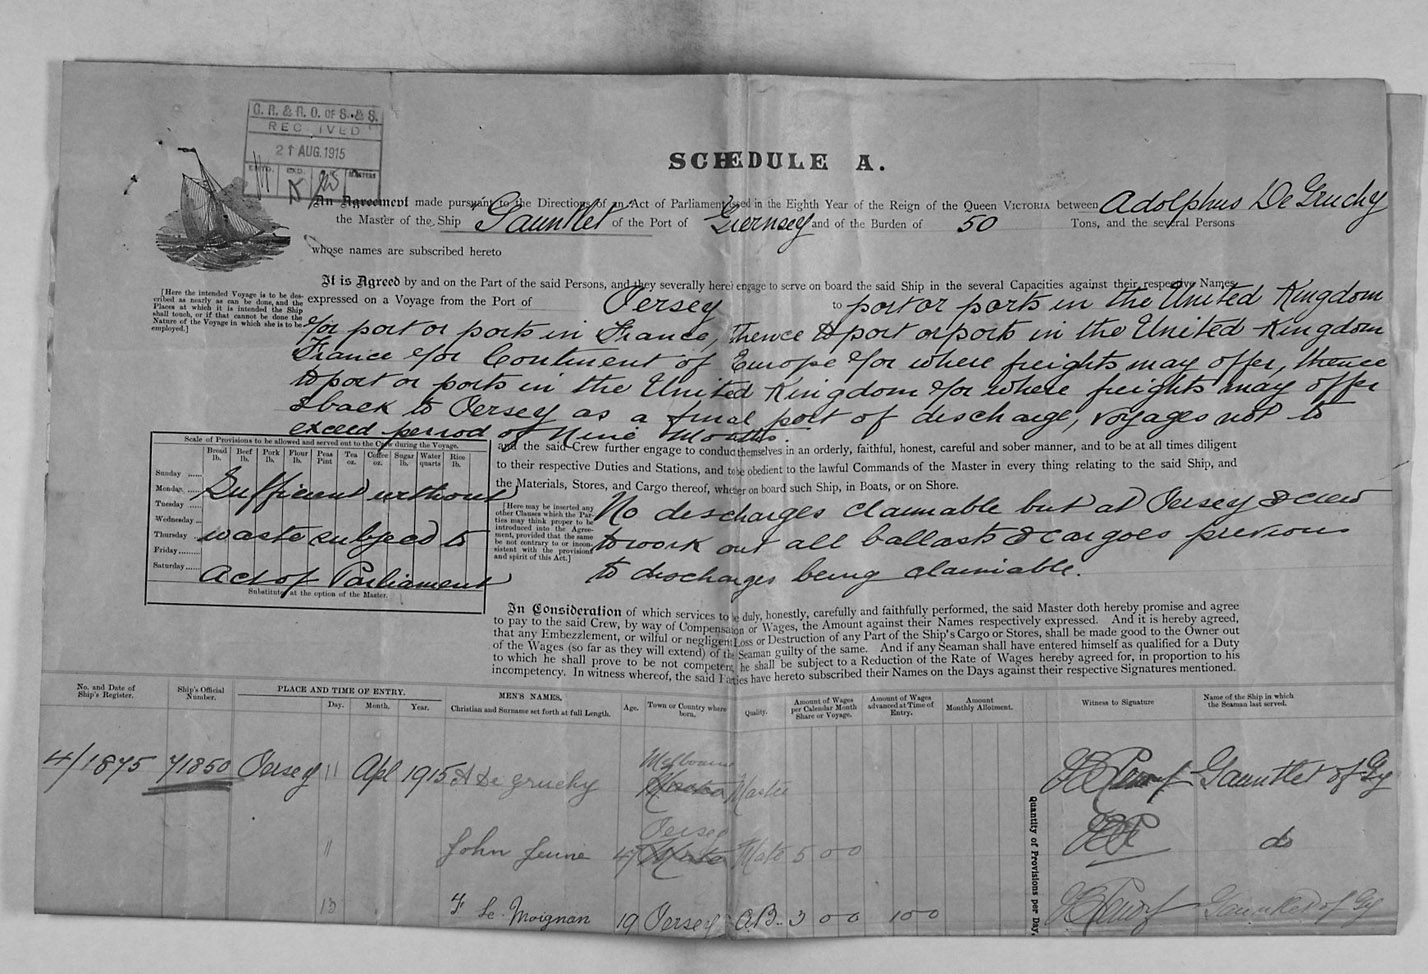 G. R. & R. O. OF S. & S.
RECEIVED
21 AUG. 1915
SCHEDULE A.
An Agreement made pursuant to the Directions of an Act of Parliament used in the Eighth Year of the Reign of the Queen VICTORIA between Adolphus De Gruchy
the Master of the Ship Gauntlet of the Port of Guernsey and of the Burden of 50 Tons, and the several Persons
whose names are subscribed hereto
It is Agreed by and on the Part of the said Persons, and they severally herei engage to serve on board the said Ship in the several Capacities against their respective Names
[Here the intended Voyage is to be des-
cribed as nearly as can be done, and the
Places at which it is intended the Ship
shall touch, or if that cannot be done the
Nature of the Voyage in which she is to be
employed.]
expressed on a Voyage from the Port of Jersey to port or ports in the United Kingdom
&/or port or ports in France, thence to port or ports in the United Kingdom
France &/or Continent of Europe &/or where freights may offer, thence
to port or ports in the United Kingdom &/or where freights may offer
& back to Jersey as a final port of discharge, voyages not to
exceed period of Nine Months.
Scale of Provisions to be allowed and served out to the Crew during the Voyage.
Bread lb. Beef lb. Pork lb. Flour lb. Peas Pint Tea oz. Coffee oz. Sugar lb. Water quarts Rice lb.
Sunday
Monday
Tuesday
Wednesday
Thursday
Friday
Saturday
Sufficient without
waste subject to
Act of Parliament
Substitutes at the option of the Master.
and the said Crew further engage to conduct themselves in an orderly, faithful, honest, careful and sober manner, and to be at all times diligent
to their respective Duties and Stations, and to be obedient to the lawful Commands of the Master in every thing relating to the said Ship, and
the Materials, Stores, and Cargo thereof, whether on board such Ship, in Boats, or on Shore.
[Here may be inserted any
other Clauses which the Par-
ties may think proper to be
introduced into the Agree-
ment, provided that the same
be not contrary to or incon-
sistent with the provisions
and spirit of this Act.]
No discharges claimable but at Jersey & crew
to work out all ballasts & cargoes previous
to discharges being claimable.
In Consideration of which services to be duly, honestly, carefully and faithfully performed, the said Master doth hereby promise and agree
to pay to the said Crew, by way of Compensation or Wages, the Amount against their Names respectively expressed. And it is hereby agreed,
that any Embezzlement, or wilful or negligent Loss or Destruction of any Part of the Ship's Cargo or Stores, shall be made good to the Owner out
of the Wages (so far as they will extend) of the Seaman guilty of the same. And if any Seaman shall have entered himself as qualified for a Duty
to which he shall prove to be not competent, he shall be subject to a Reduction of the Rate of Wages hereby agreed for, in proportion to his
incompetency. In witness whereof, the said Parties have hereto subscribed their Names on the Days against their respective Signatures mentioned.
No. and Date of Ship's Register. Ship's Official Number. PLACE AND TIME OF ENTRY. Day. Month. Year. MEN'S NAMES, Christian and Surname set forth at full Length. Age. Town or Country where born. Quality. Amount of Wages per Calendar Month Share or Voyage. Amount of Wages advanced at Time of Entry. Amount Monthly Allotment. Witness to Signature Name of the Ship in which the Seaman last served.
4/1875 71850 Jersey 11 Apl 1915 A De gruchy Melbourne Master Gauntlet of Gy
11 John Jeune 47 Jersey Mate 5 0 0 do
13 Le Moignan 19 Jersey A.B. 3 0 0 1 0 0 Gauntlet of Gy
Quantity of Provisions per Day.